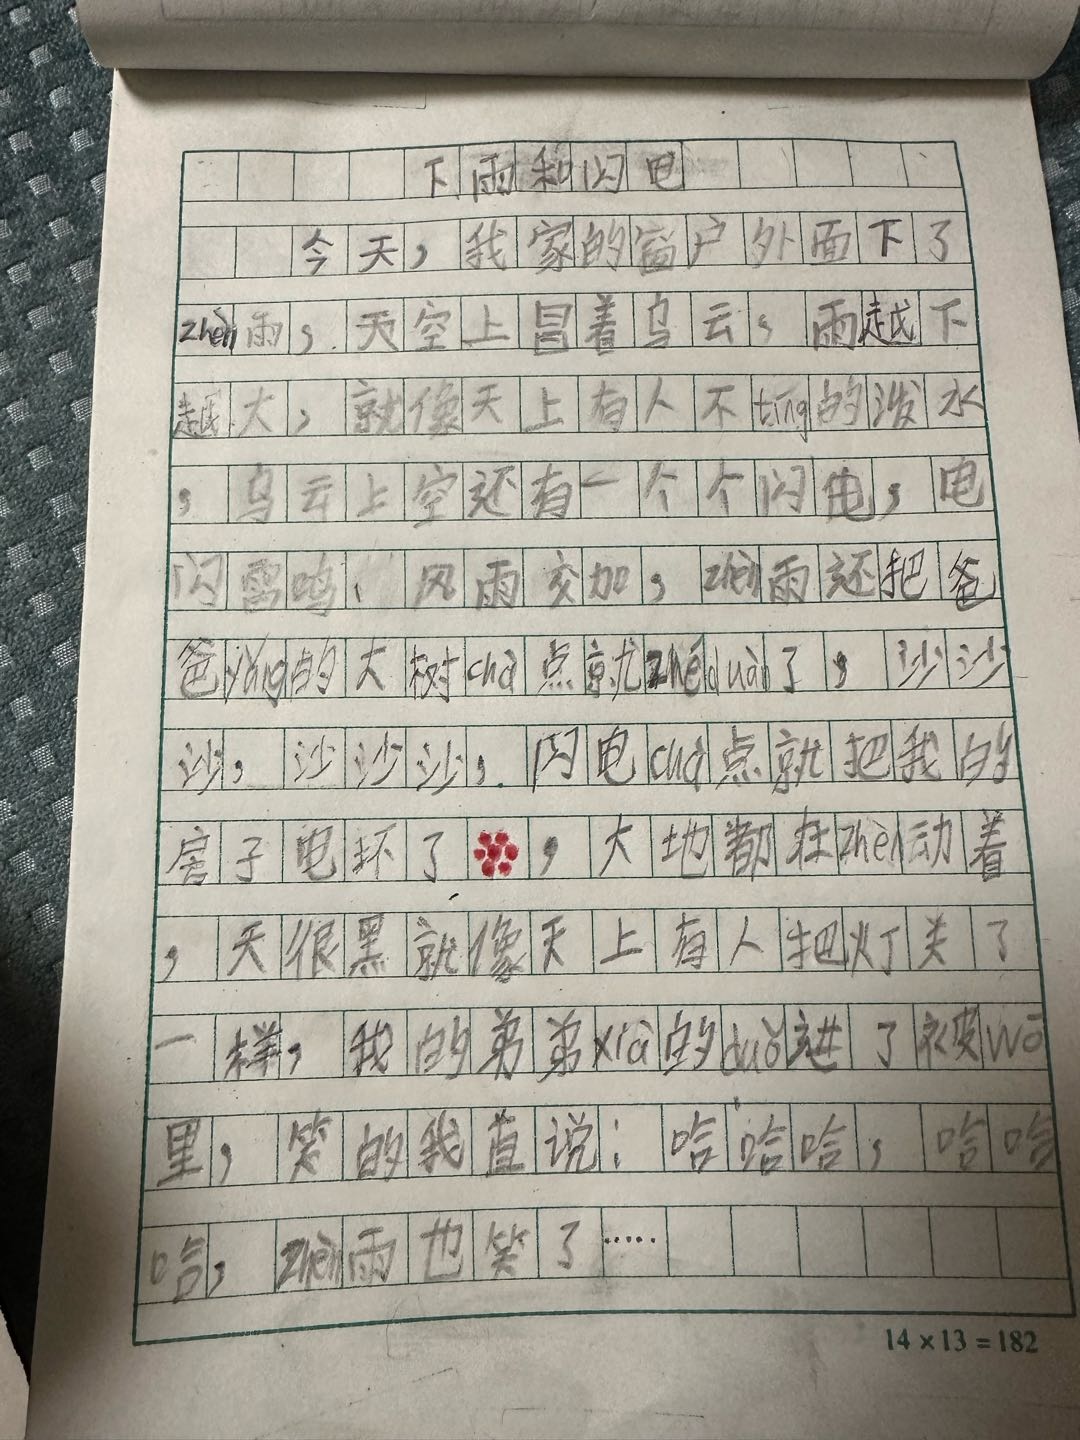 下雨和闪电
今天，我家的窗户外面下了
zhèn雨，天空上冒着乌云，雨越下
越大，就像天上有人不tíng的泼水
，乌云上空还有一个个闪电，电
闪雷鸣、风雨交加，zhèn雨还把爸
爸yǎng的大树chà点就zhéduàn了，沙沙
沙，沙沙沙，闪电chà点就把我的
房子电坏了，大地都在zhèn动着
，天很黑就像天上有人把灯关了
一样，我的弟弟xià的duǒ进了被wō
里，笑的我直说：哈哈哈，哈哈
哈，zhèn雨也笑了……
14×13=182